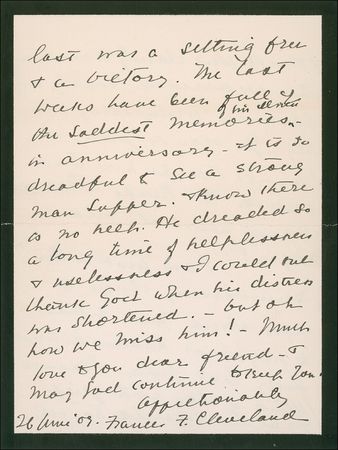 last was a setting free
& a victory. The last
weeks have been full of
the saddest memories - 
in anniversary - it is so
dreadful to see a strong
man suffer. & know there
is no help. He dreaded so
a long time of helplessness
& uselessness & I could but
thank God when his distress
was shortened. - but oh
how we miss him! - Much
love to you dear friend - &
may God continue to you.
Affectionately
26 June '09. Frances F. Cleveland